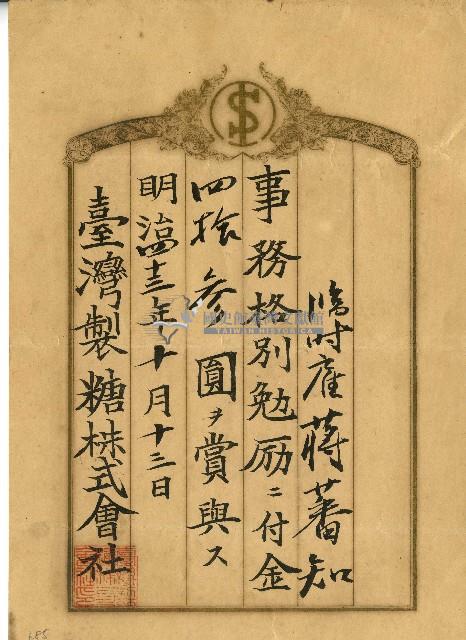 臨時雇蔣蕃知
事務格別勉励ニ付金
四拾参圓ヲ賞與ス
明治四十三年十月十三日
臺灣製糖株式會社
國史館臺灣文獻館
TAIWAN HISTORICA
685